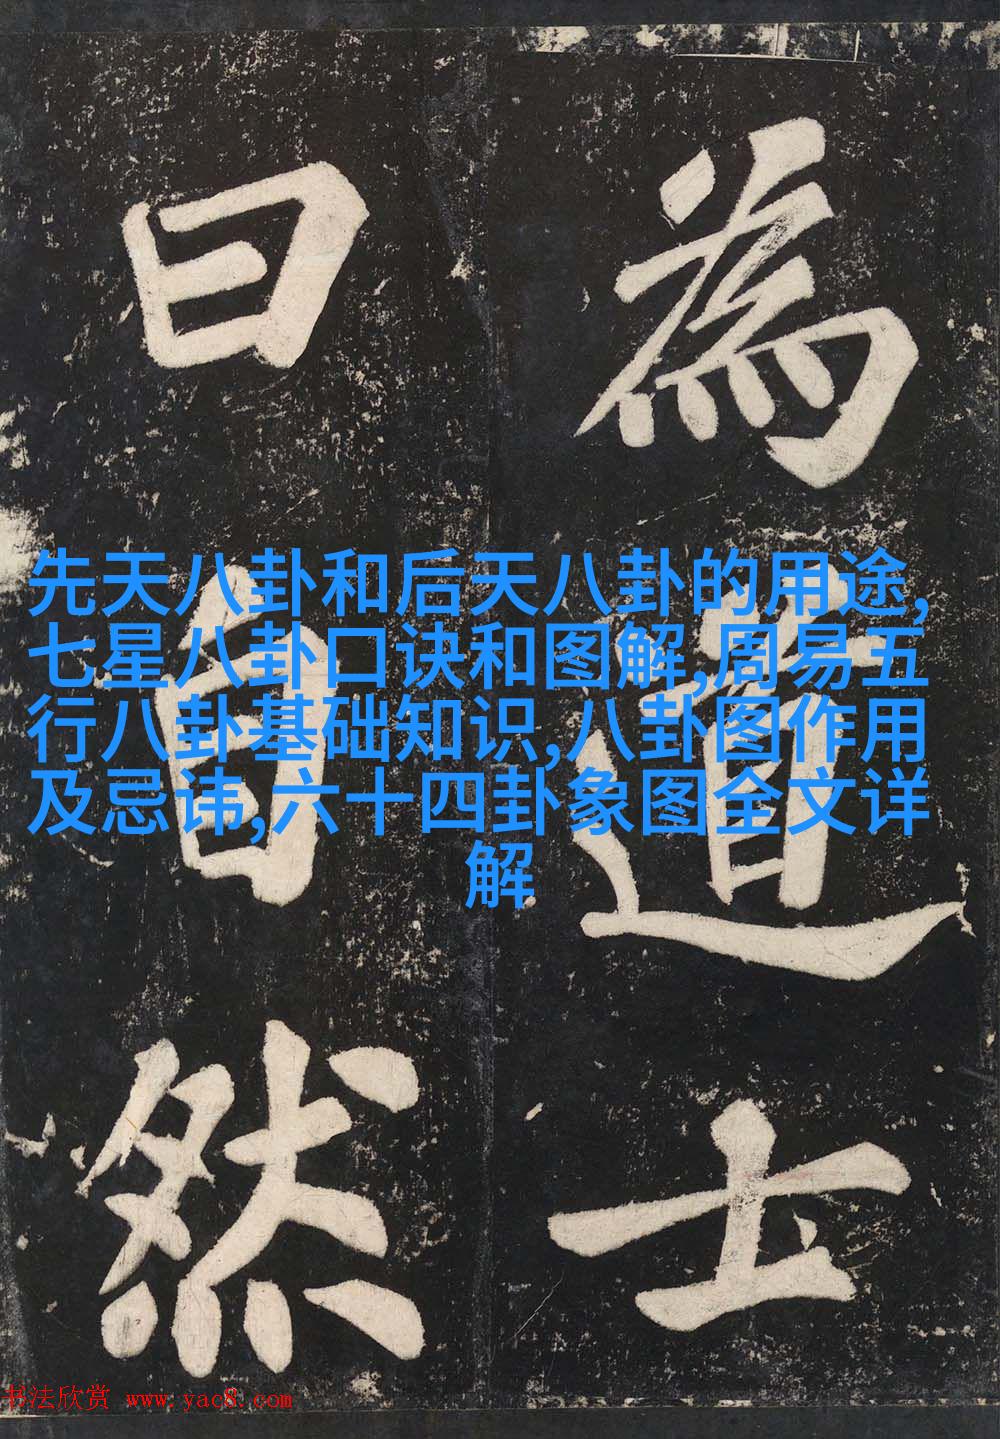 為道士
曰自然
先天八卦和后天八卦的用途,
七星八卦口诀和图解,周易五
行八卦基础知识,八卦图作用
及忌讳,六十四卦象图全文详
解
书法欣赏 www.yac8.com